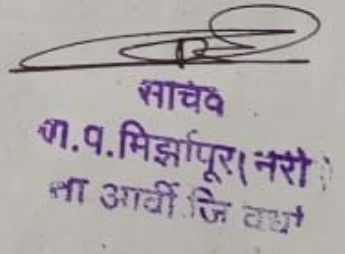 सचिव
ग्रा.पं.मिर्झापूर(नेरी)
ता आर्वी जि वर्धा